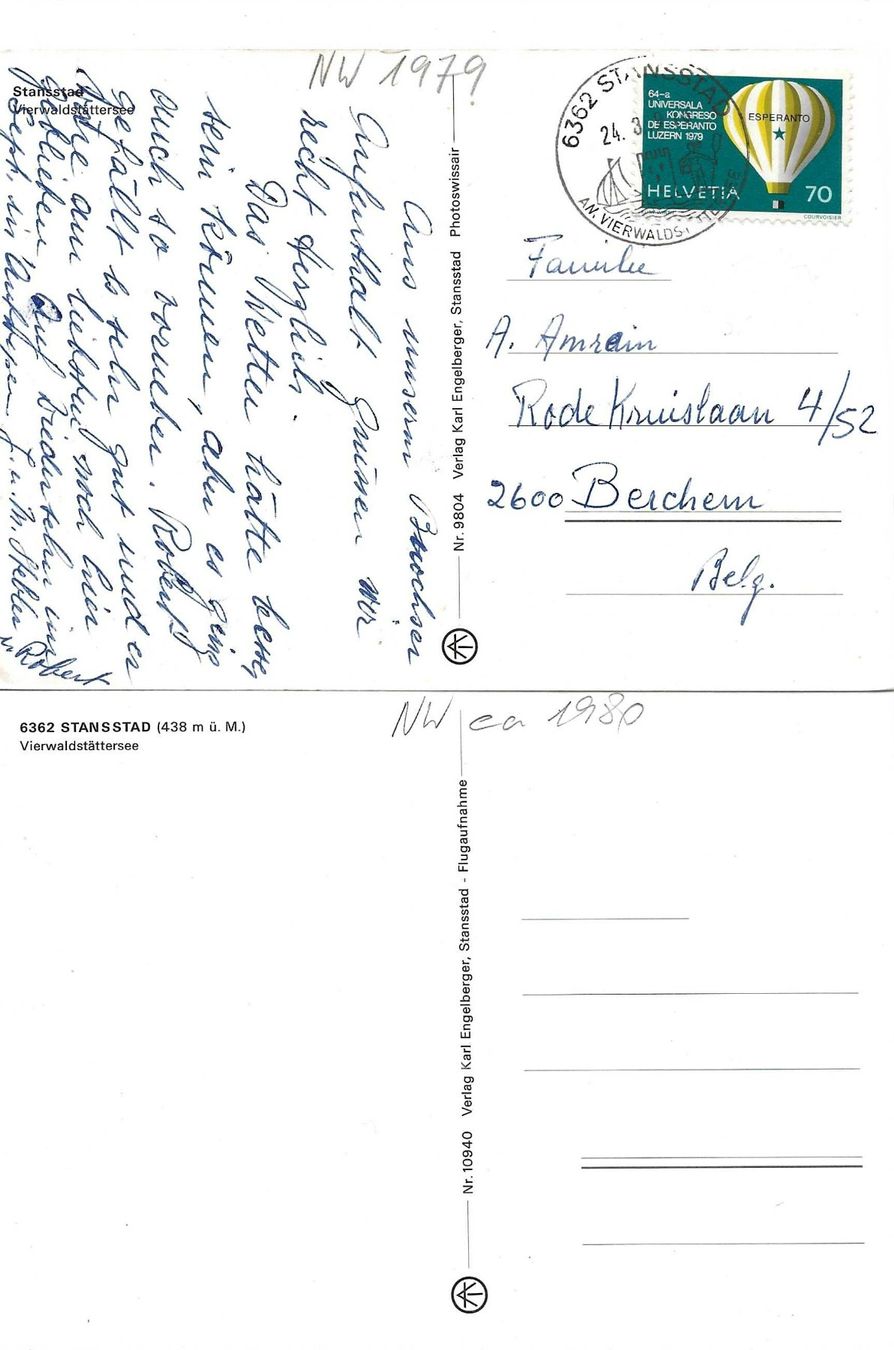 NW 1979
Stansstad
Vierwaldstättersee
Aus unserm Buochser
Aufenthalt grüssen wir
recht herzlich.
Das Wetter hätte besser
sein können, aber es ging
auch so vorueber. Robert
gefällt es sehr gut und er
wäre am liebsten noch hier
geblieben. Auf Wiedersehn im
Sept. in Antwerpen J. u. M. Stebler
u. Robert
Nr. 9804 Verlag Karl Engelberger, Stansstad Photoswissair
6362 STANSSTAD
24. 3
AM VIERWALDST
64-a
UNIVERSALA
KONGRESO
DE ESPERANTO
LUZERN 1979
ESPERANTO
HELVETIA 70
COURVOISIER
Familie
A. Amrein
Rode Kruislaan 4/52
2600 Berchem
Belg.
NW ca 1980
6362 STANSSTAD (438 m ü. M.)
Vierwaldstättersee
Nr. 10940 Verlag Karl Engelberger, Stansstad - Flugaufnahme